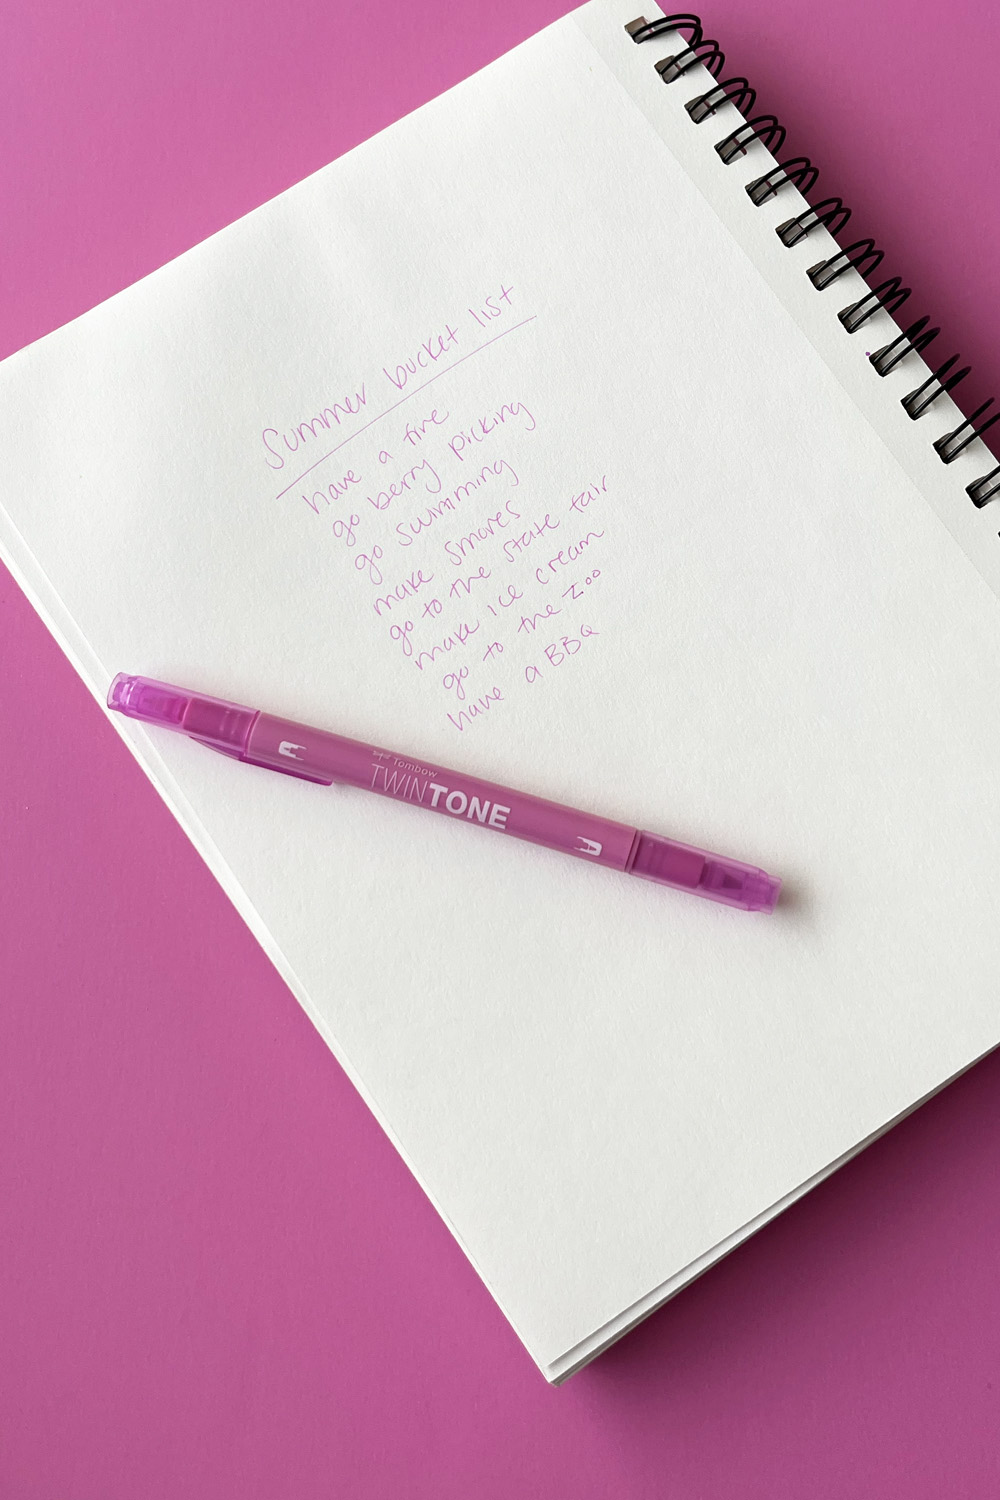 Summer bucket list
have a fire
go berry picking
go swimming
make smores
go to the state fair
make ice cream
go to the zoo
have a BBQ
Tombow
TWINTONE